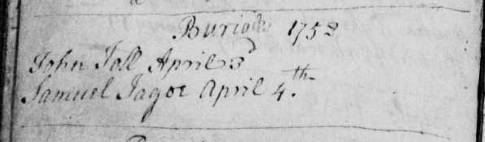 Burials 1752
John Tall April 3d
Samuel Jagoe April 4th.